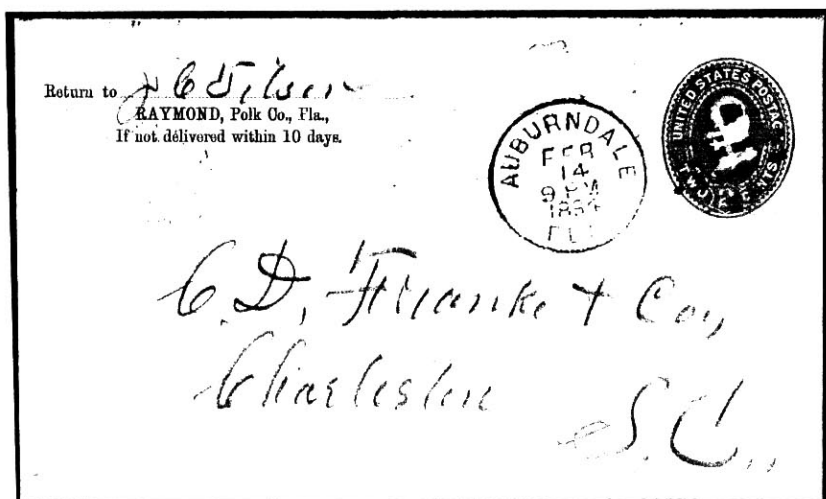 Return to J C Wilson
RAYMOND, Polk Co., Fla.,
If not delivered within 10 days.
AUBURNDALE
FEB
14
9 PM
FLA
UNITED STATES POSTAGE
TWO CENTS
C. D. Franke & Co.,
Charleston
S. C.,